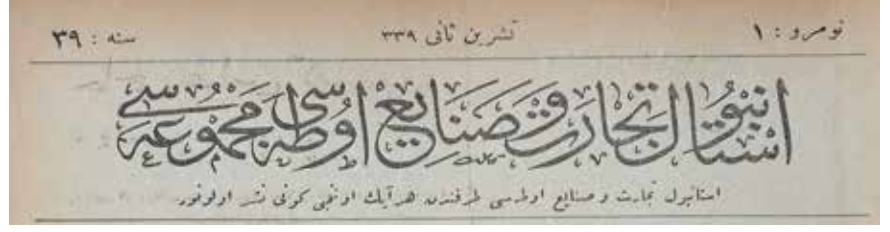 نومرو : ١ تشرین ثانی ٣٣٩ سنه : ٣٩
استانبول تجارت و صنایع اوطه‌سی مجموعه‌سی
استانبول تجارت و صنایع اوطه‌سی طرفندن هر آیك اونجی كونی نشر اولونور